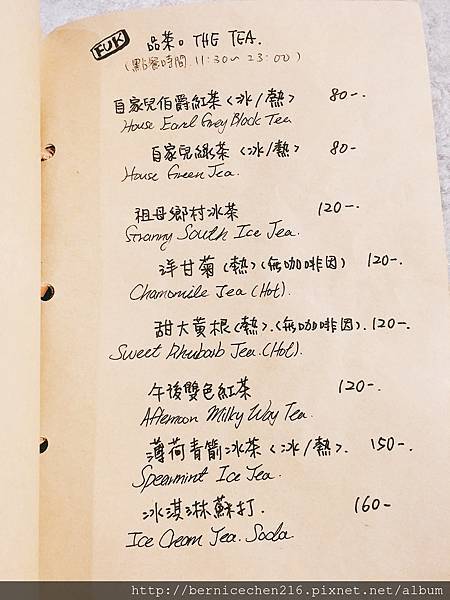 FUK 品茶。THE TEA.
(點餐時間 11:30~23:00)
自家兒伯爵紅茶<冰/熱> 80-.
House Earl Grey Black Tea
自家兒綠茶<冰/熱> 80-
House Green Tea.
祖母鄉村冰茶 120-.
Granny South Ice Tea.
洋甘菊(熱)(無咖啡因) 120-.
Chamomile Tea (Hot).
甜大黃根(熱).(無咖啡因). 120-.
Sweet Rhubarb Tea.(Hot).
午後雙色紅茶 120-.
Afternoon Milky Way Tea.
薄荷青箭冰茶<冰/熱>. 150-.
Spearmint Ice Tea.
冰淇淋蘇打. 160-
Ice Cream Tea. Soda
http://bernicechen216.pixnet.net/album